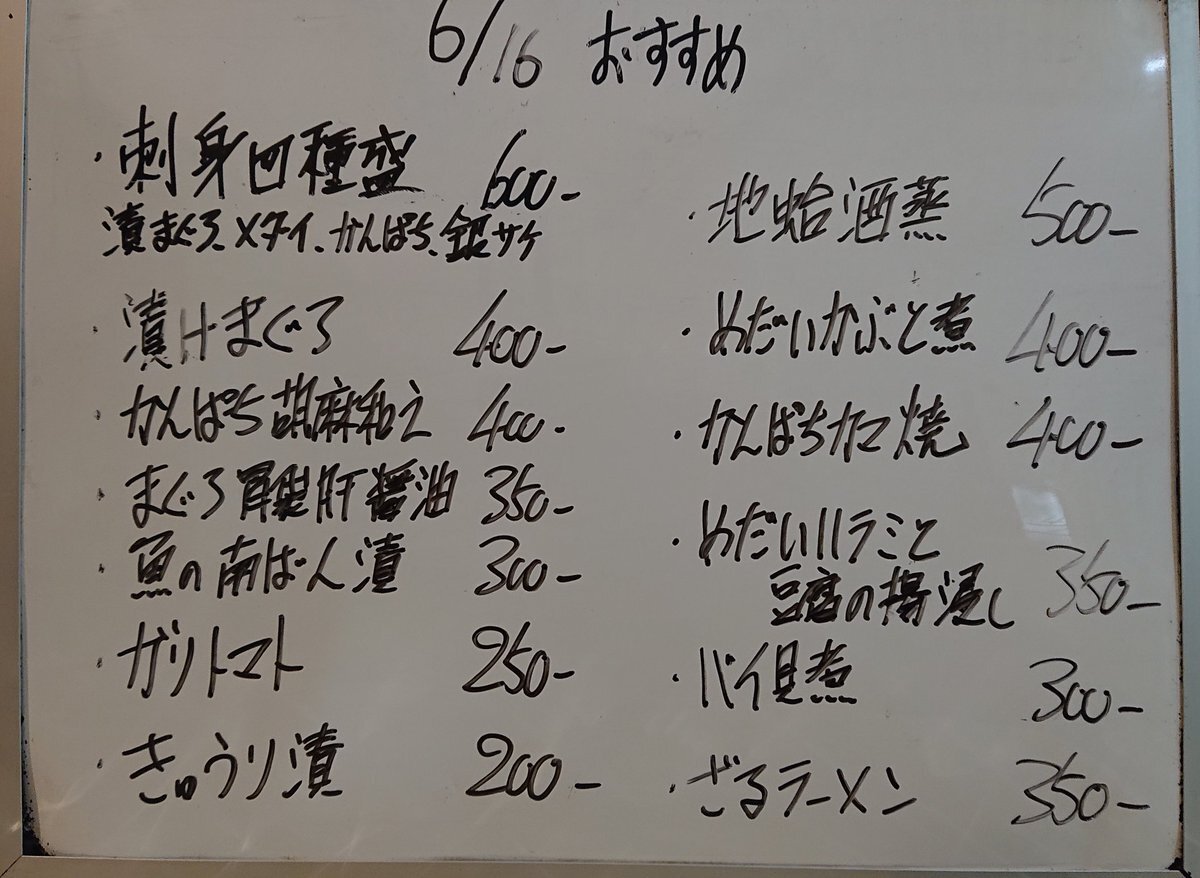 6/16 おすすめ
・刺身四種盛 600-
漬まぐろ、メダイ、かんぱち、銀サケ
・漬けまぐろ 400-
・かんぱち胡麻和え 400-
・まぐろ 肝醤油 350-
・魚の南ばん漬 300-
・ガリトマト 250-
・きゅうり漬 200-
・地蛤酒蒸 500-
・めだいかぶと煮 400-
・かんぱちカマ焼 400-
・めだいハラミと
豆腐の揚浸し 350-
・バイ貝煮 300-
・ざるラーメン 350-